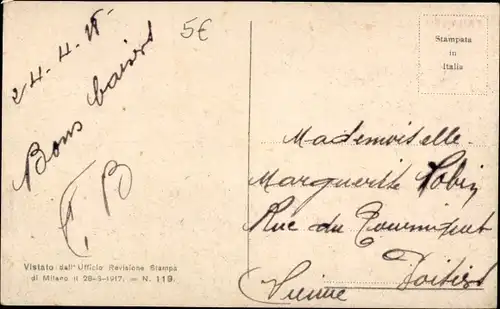 24.4.18
5€
Bons baisers
F. B
Stampata
in
Italia
Mademoiselle
Marguerite Robin
Rue du Tourniquet
Poitiers
Vienne
Vistato dall' Ufficio Revisione Stampa
di Milano il 28-5-1917. — N. 119.